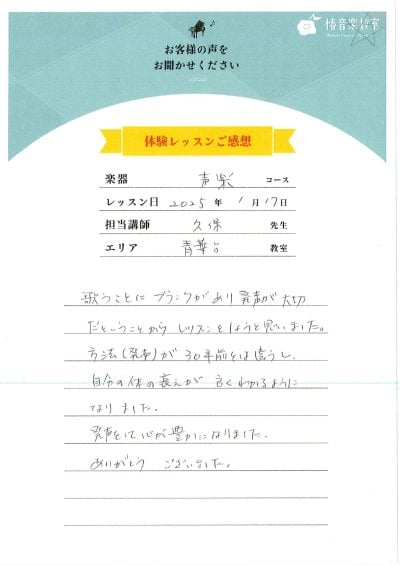 椿音楽教室
お客様の声を
お聞かせください
Voice
体験レッスンご感想
楽器 声楽 コース
レッスン日 2025 年 1 月 17 日
担当講師 久保 先生
エリア 青葉台 教室
歌うことに ブランクがあり 発声が 大切
だということから レッスンをしようと思いました。
方法(発声)が 30年前とは違うし、
自分の体の衰えが 良くわかるように
なりました。
発声をして心が豊かになりました。
ありがとう ございました。